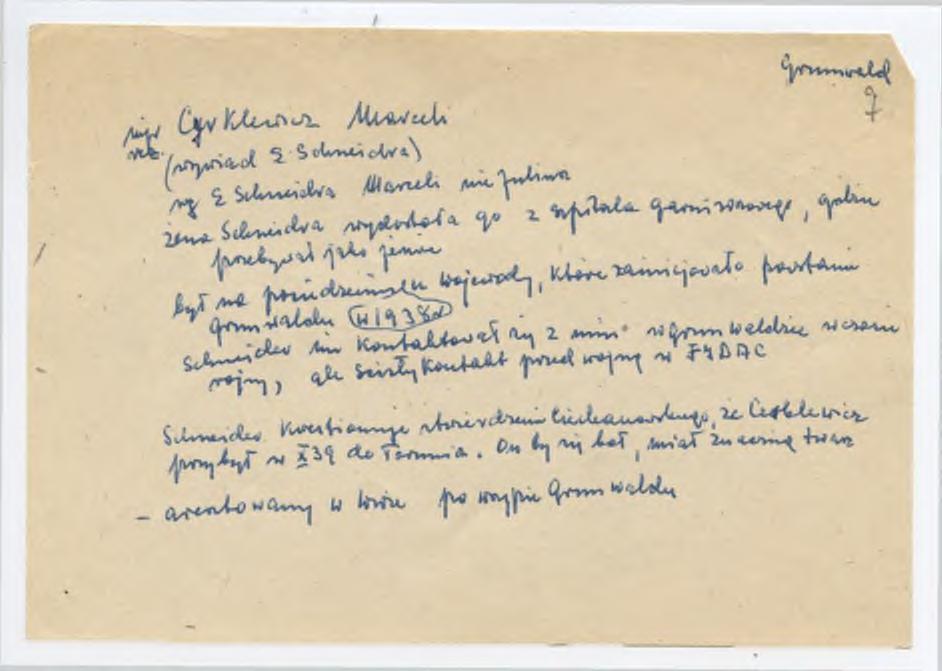 Grunwald
7
mjr Cyrklewicz Marceli
rez.
(wywiad E. Schneidra)
wg E Schneidra Marceli nie Julian
żona Schneidra wydostała go z szpitala garnizonowego, gdzie
przebywał jako jeniec
był na posiedzeniu u wojewody, które zainicjowało powstanie
Grunwaldu w 1938r
Schneider nie kontaktował się z nim w Grunwaldzie w czasie
wojny, ale ścisły kontakt przed wojną w FIDAC
Schneider kwestionuje stwierdzenie Ciechanowskiego, że Cerklewicz
przybył w X 39 do Torunia. On by się bał, miał znaczną twarz
- aresztowany w po wsypie Grunwaldu